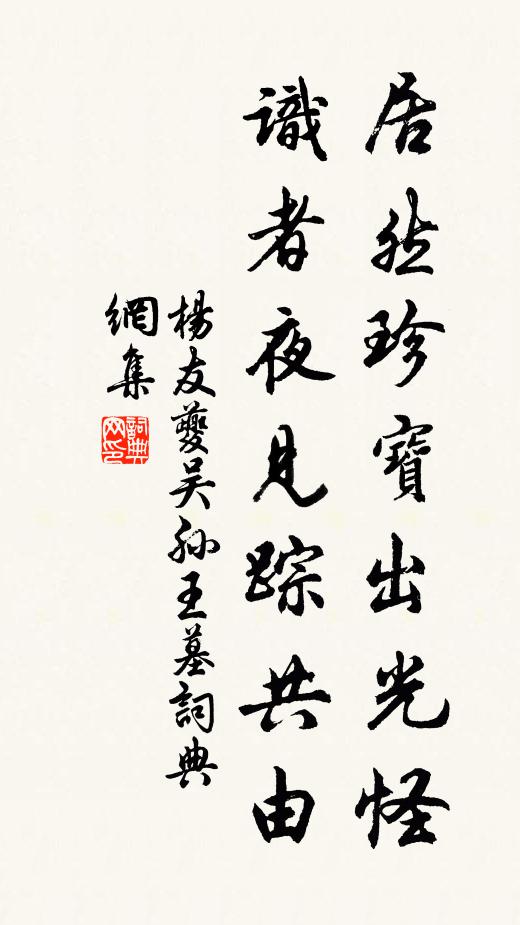 居然珍寶出光怪
識者夜見踪共由
楊友夔吴孫王墓詞典
網集
詞典
网印